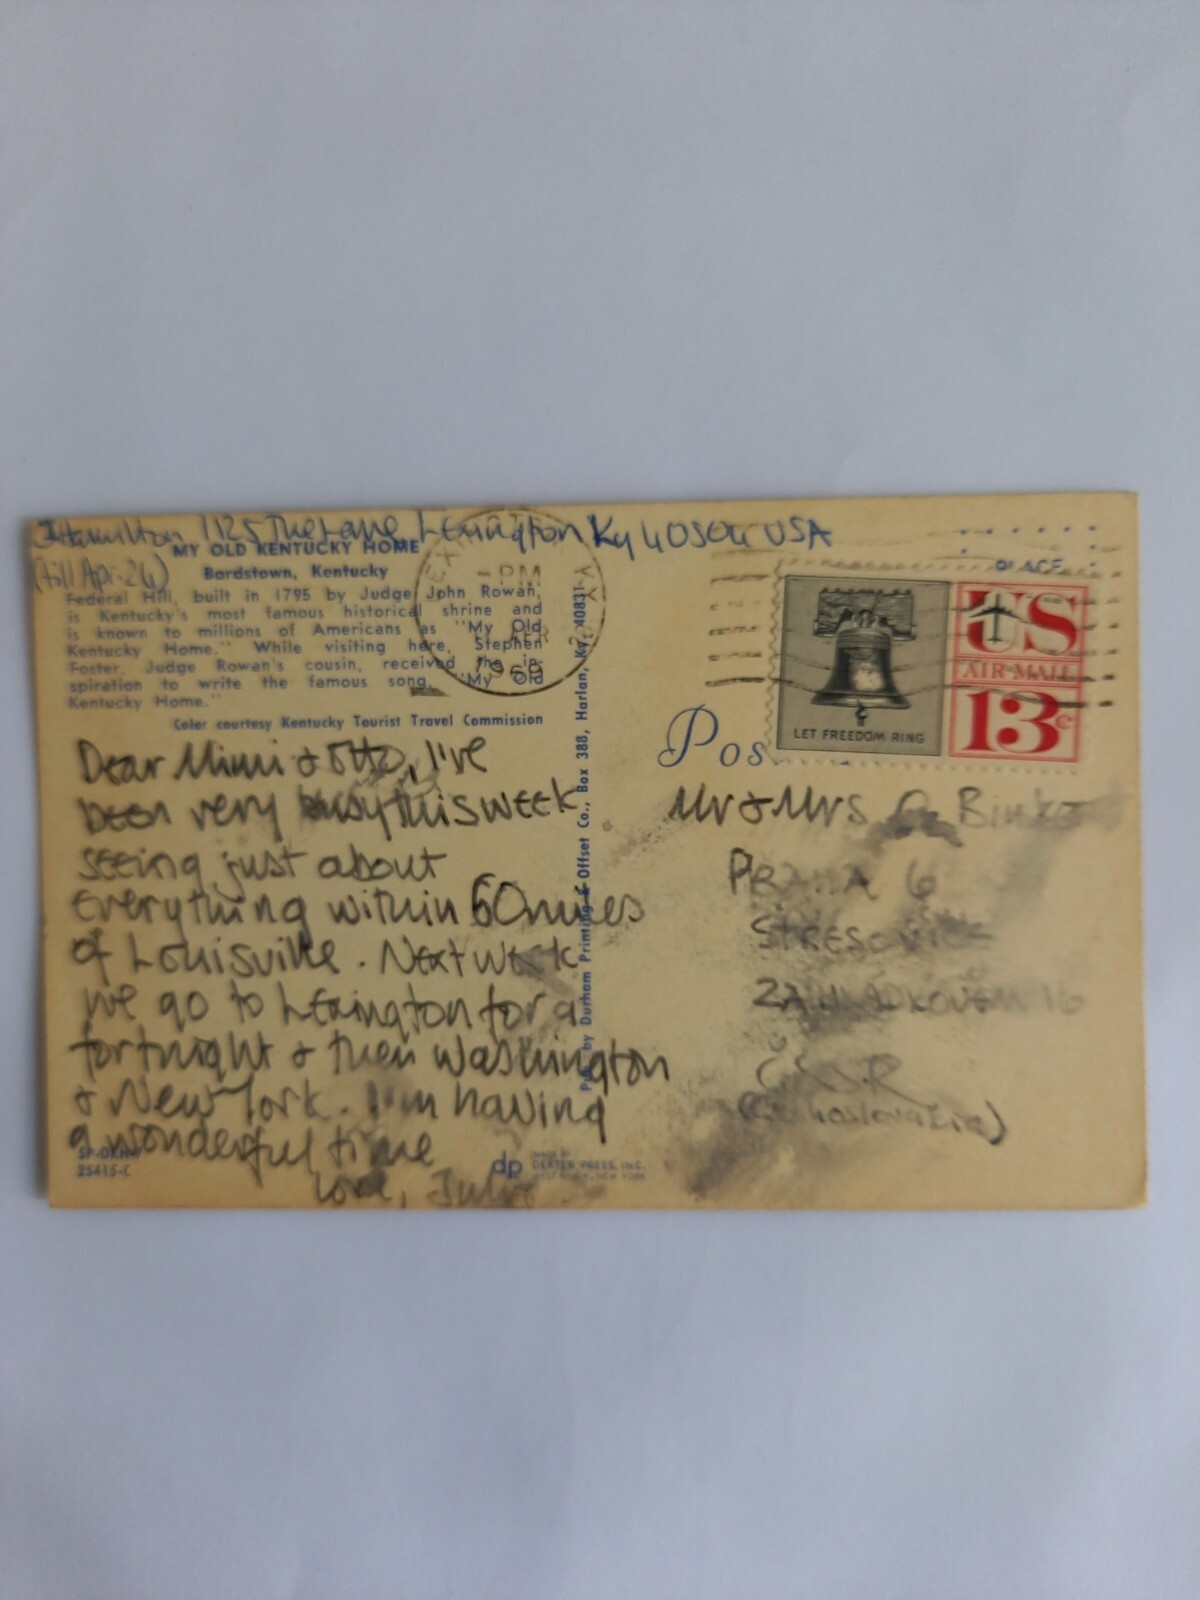 JHamilton 1125 The Lane Lexington Ky 40504 USA
(till Apr. 24)
MY OLD KENTUCKY HOME
Bardstown, Kentucky
Federal Hill, built in 1795 by Judge John Rowan,
is Kentucky's most famous historical shrine and
is known to millions of Americans as "My Old
Kentucky Home." While visiting here, Stephen
Foster, Judge Rowan's cousin, received the in-
spiration to write the famous song, "My Old
Kentucky Home."
Color courtesy Kentucky Tourist Travel Commission
PM
APR
1969
Dear Mimi & Otto, I've
been very busy this week
seeing just about
everything within 60 miles
of Louisville. Next week
we go to Lexington for a
fortnight & then Washington
& New York. I'm having
a wonderful time
Love, Julie
25415-C
by Durham Printing & Offset Co., Box 388, Harlan, Ky. 40831
dp
MADE BY
DEXTER PRESS, INC.
WEST NYACK, NEW YORK
PLACE
LET FREEDOM RING
US
AIR MAIL
13c
Pos
Mr & Mrs O.
PRAHA 6
STRESOVICE
16
ČSSR
(Czechoslovakia)